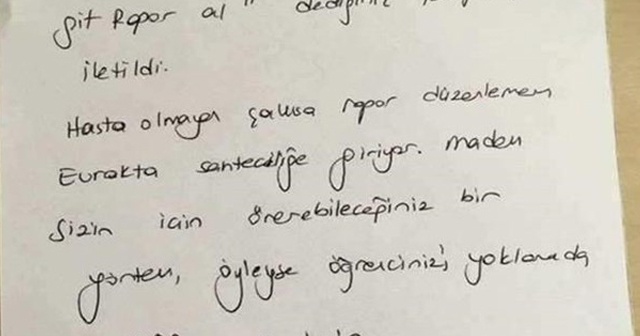 git Rapor al " dediğiniz
iletildi.
Hasta olmayan şahısa rapor düzenlemem
Evrakta sahteciliğe giriyor. madem
Sizin için önerebileceğiniz bir
yöntem, öyleyse öğrencinizi yoklamada